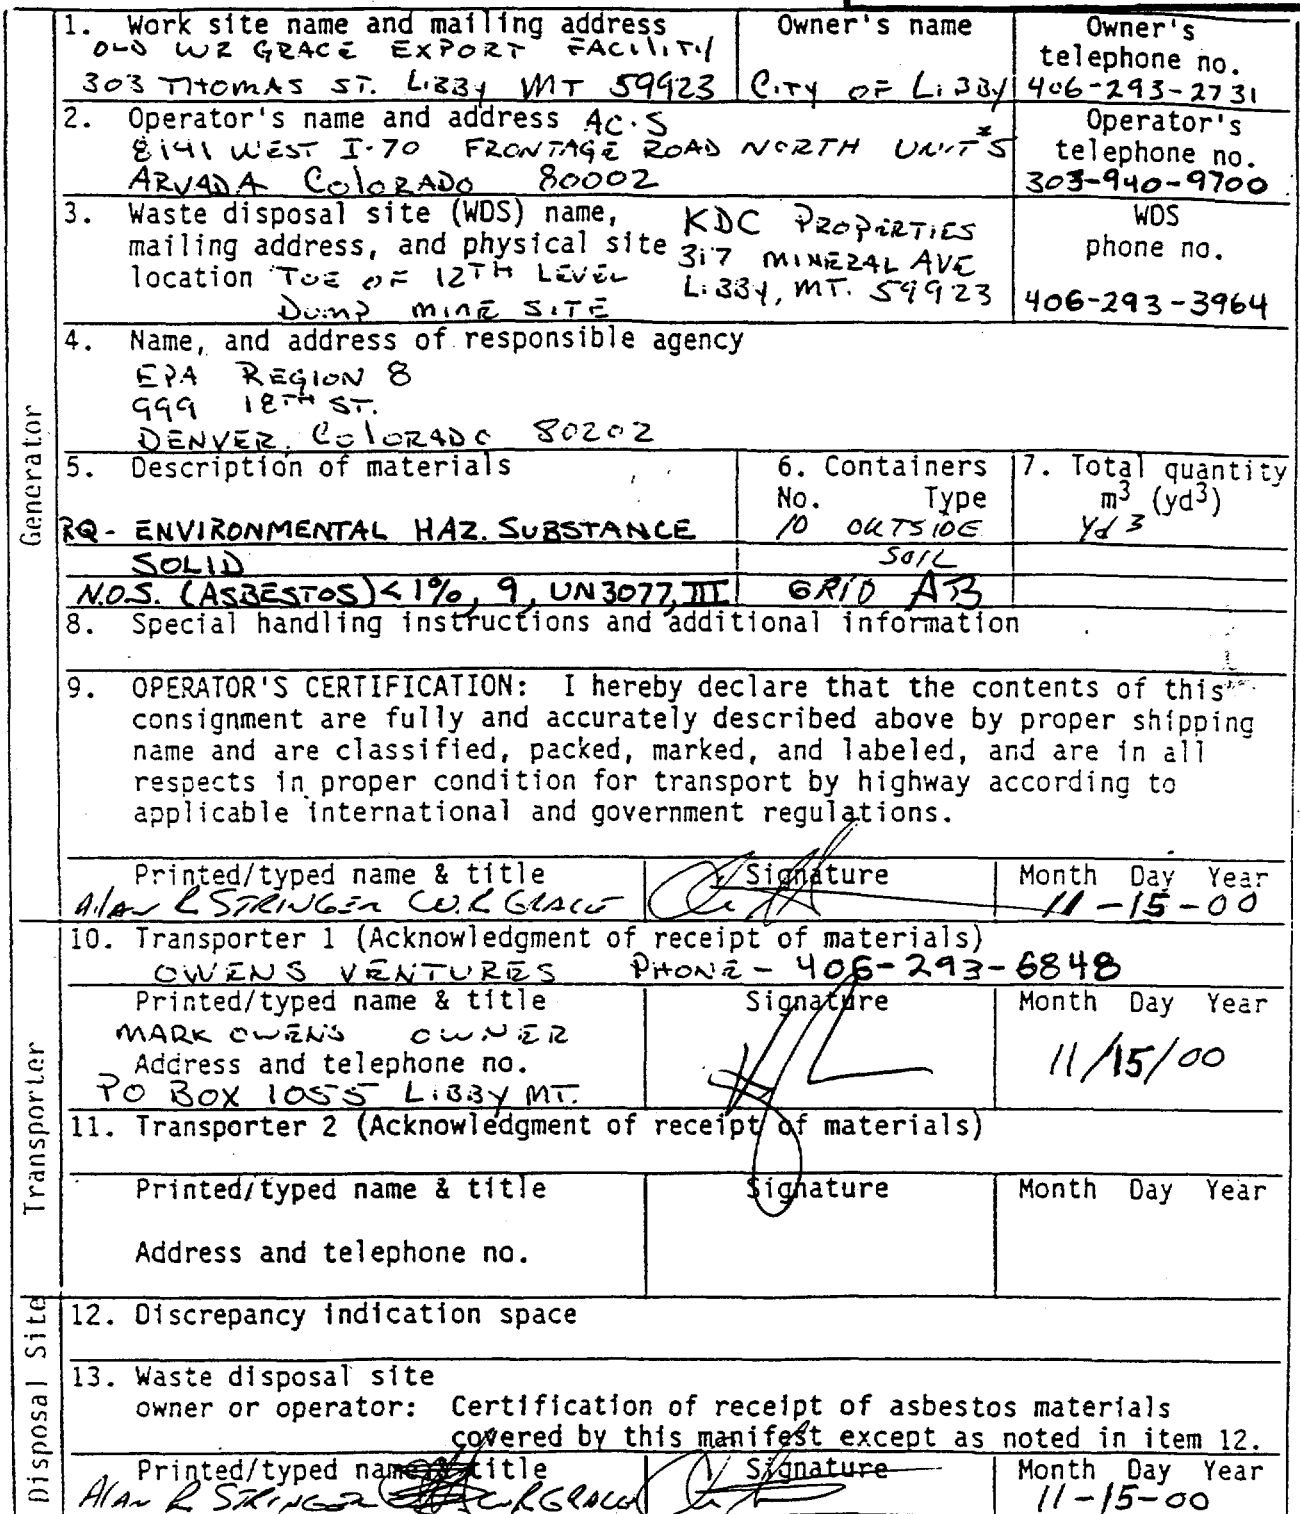 1. Work site name and mailing address
OLD WR GRACE EXPORT FACILITY
303 THOMAS ST. LIBBY MT 59923
Owner's name
CITY OF LIBBY
Owner's telephone no.
406-293-2731
2. Operator's name and address ACS
8141 WEST I-70 FRONTAGE ROAD NORTH UNIT #5
ARVADA COLORADO 80002
Operator's telephone no.
303-940-9700
3. Waste disposal site (WDS) name,
mailing address, and physical site
location TOE OF 12TH LEVEL
DUMP MINE SITE
KDC PROPERTIES
317 MINERAL AVE
LIBBY, MT. 59923
WDS
phone no.
406-293-3964
4. Name, and address of responsible agency
EPA REGION 8
999 18TH ST.
DENVER, COLORADO 80202
Generator
5. Description of materials
RQ - ENVIRONMENTAL HAZ. SUBSTANCE
SOLID
N.O.S. (ASBESTOS) < 1%, 9, UN3077, III
6. Containers
No. Type
10 OUTSIDE
SOIL
GRID A3
7. Total quantity
m3 (yd3)
Yd 3
8. Special handling instructions and additional information
9. OPERATOR'S CERTIFICATION: I hereby declare that the contents of this
consignment are fully and accurately described above by proper shipping
name and are classified, packed, marked, and labeled, and are in all
respects in proper condition for transport by highway according to
applicable international and government regulations.
Printed/typed name & title
Alan R STRINGER W.R GRACE
Signature
Month Day Year
11-15-00
Transporter
10. Transporter 1 (Acknowledgment of receipt of materials)
OWENS VENTURES PHONE - 406-293-6848
Printed/typed name & title
MARK OWENS OWNER
Address and telephone no.
PO BOX 1055 LIBBY MT.
Signature
Month Day Year
11/15/00
11. Transporter 2 (Acknowledgment of receipt of materials)
Printed/typed name & title
Signature
Month Day Year
Address and telephone no.
Disposal Site
12. Discrepancy indication space
13. Waste disposal site
owner or operator: Certification of receipt of asbestos materials
covered by this manifest except as noted in item 12.
Printed/typed name & title
Alan R STRINGER W.R GRACE
Signature
Month Day Year
11-15-00